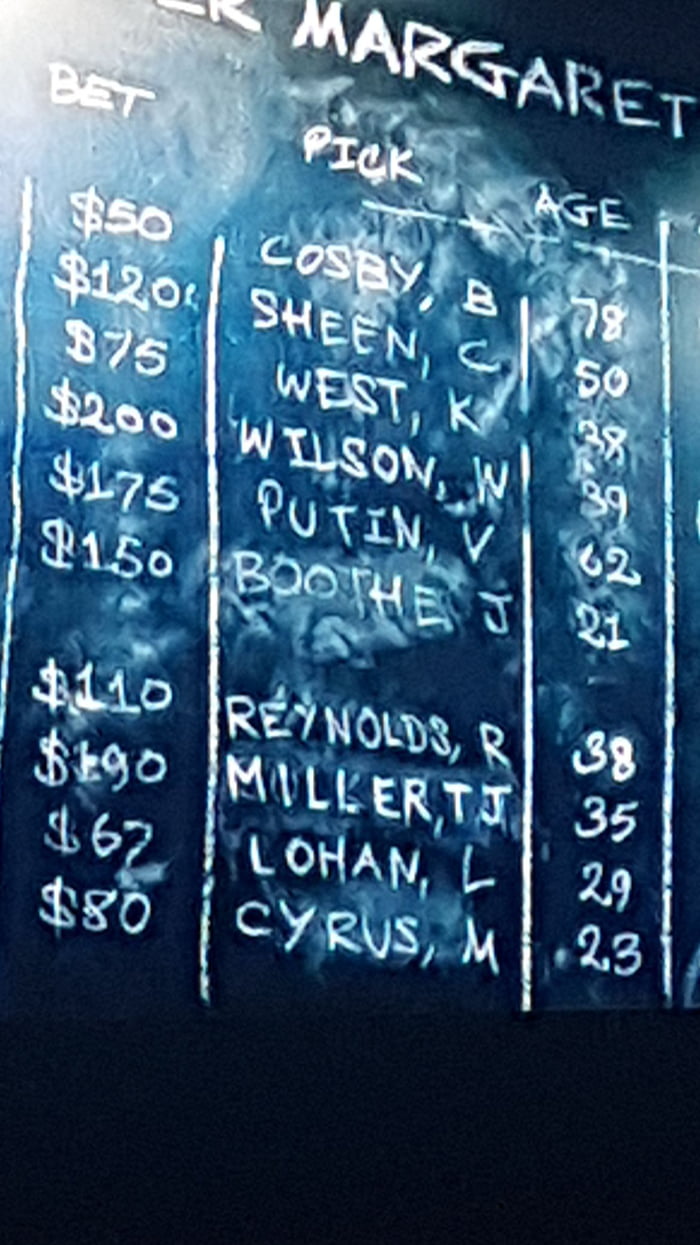 ER MARGARET
BET PICK AGE
$50 COSBY, B 78
$120 SHEEN, C 50
$75 WEST, K 38
$200 WILSON, W 39
$175 PUTIN, V 62
$150 BOOTHE J 21
$110 REYNOLDS, R 38
$190 MILLER, TJ 35
$67 LOHAN, L 29
$80 CYRUS, M 23